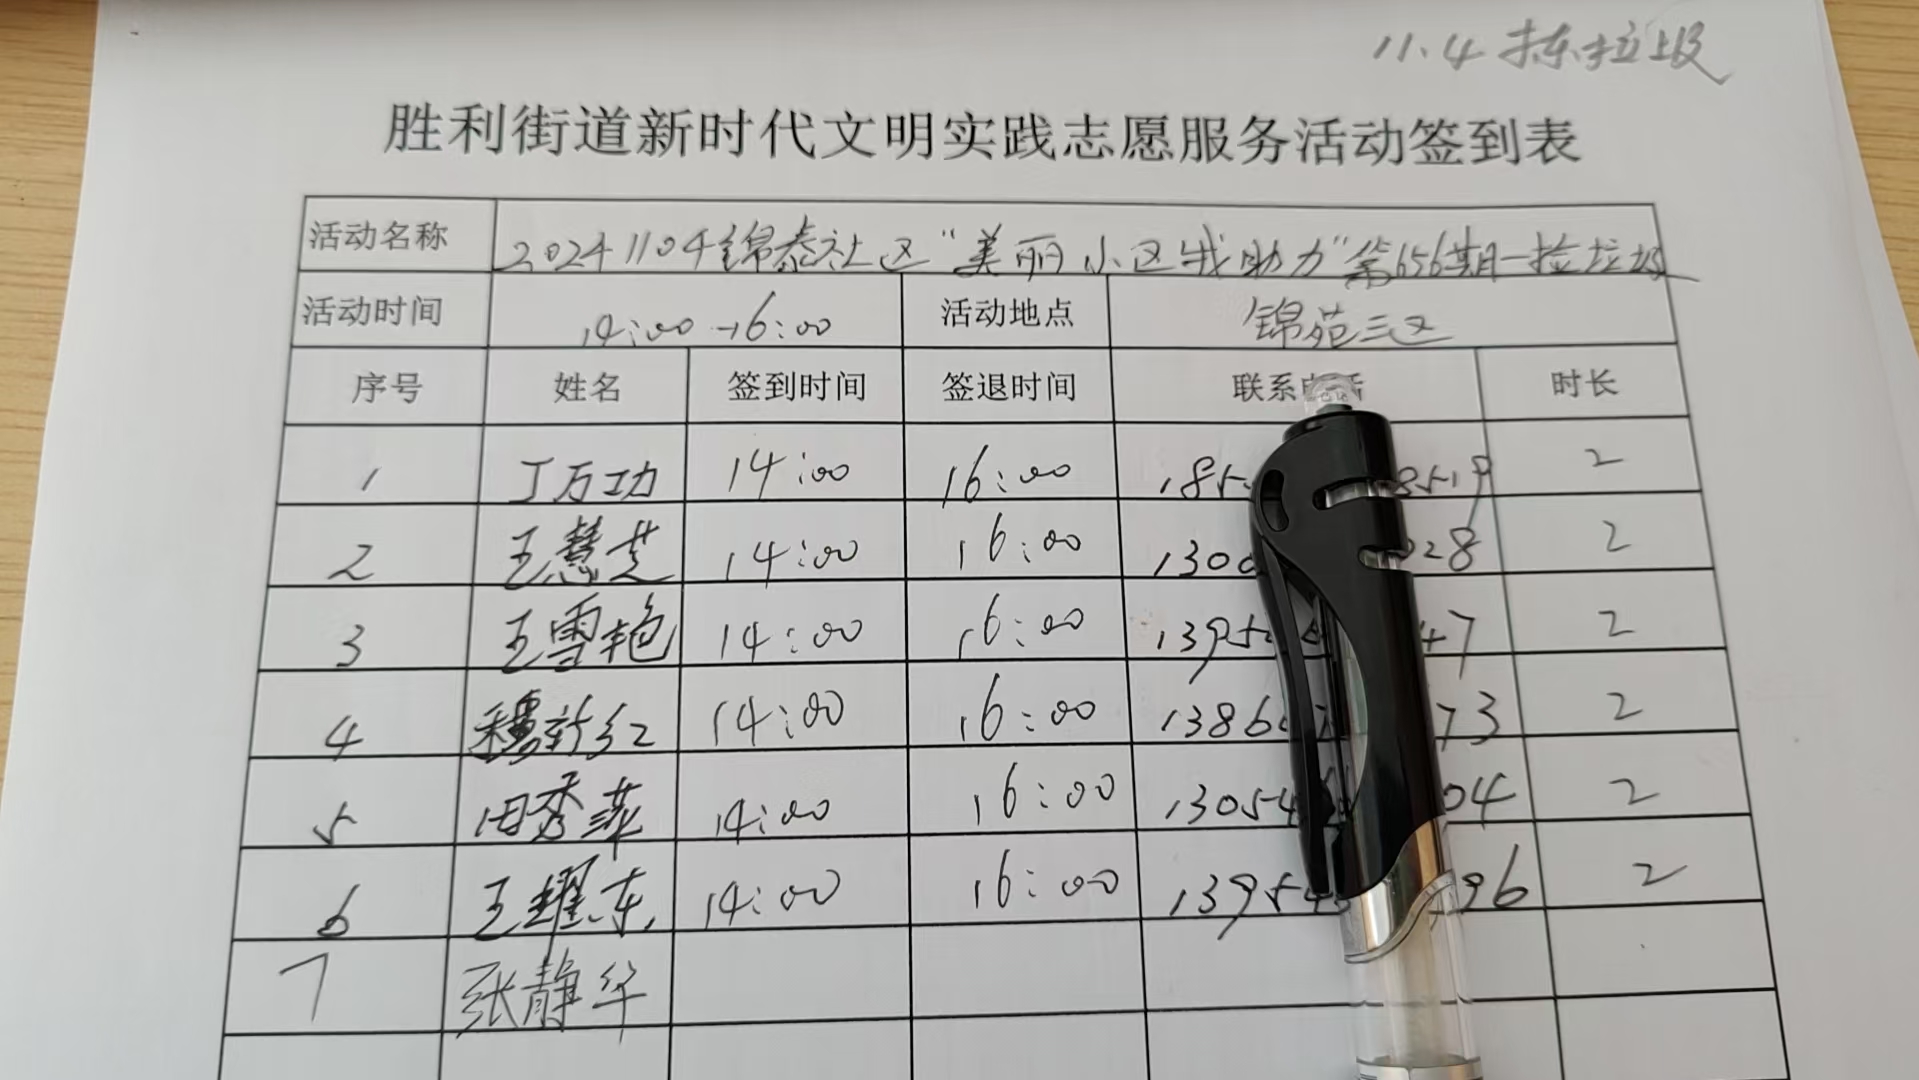 11.4 拣垃圾
胜利街道新时代文明实践志愿服务活动签到表
活动名称 20241104锦泰社区“美丽小区我助力”第656期-捡垃圾
活动时间 14:00-16:00 活动地点 锦苑三区
序号 姓名 签到时间 签退时间 联系电话 时长
1 丁万功 14:00 16:00 185 8519 2
2 王慧芝 14:00 16:00 130 028 2
3 王雪艳 14:00 16:00 1395 47 2
4 穆新红 14:00 16:00 1386 73 2
5 田秀萍 14:00 16:00 13054 04 2
6 王耀东 14:00 16:00 13954 96 2
7 张静华